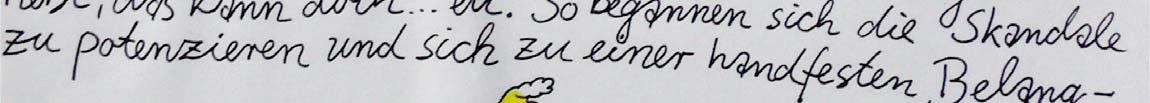 was kann doch... etc. So begannen sich die Skandale
zu potenzieren und sich zu einer handfesten Belang-